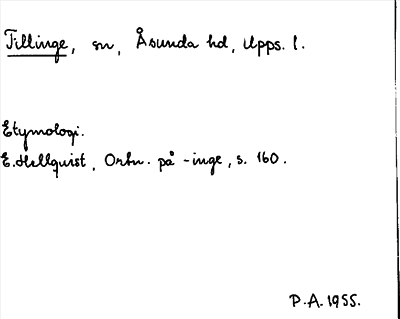 Tillinge, sn, Åsunda hd, Upps. l.
Etymologi.
E. Hellquist, Ortn. på -inge, s. 160.
P.A. 1955.